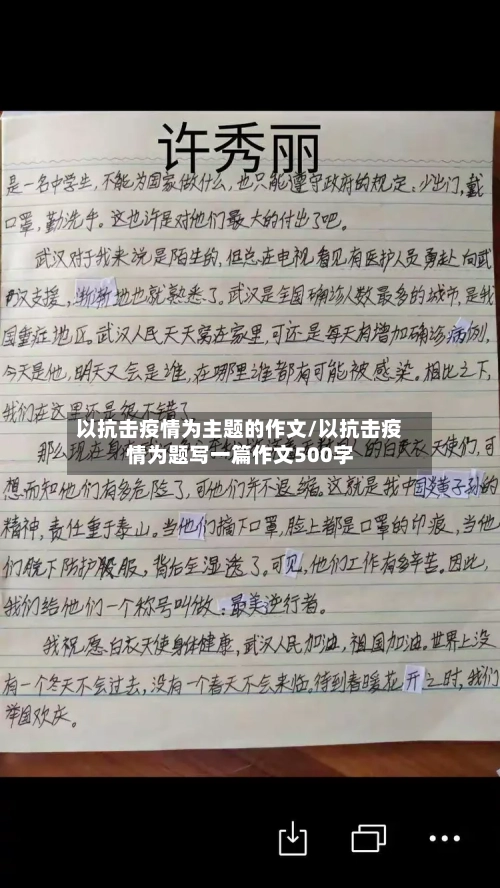 许秀丽
是一名中学生,不能为国家做什么,也只能遵守政府的规定:少出门,戴
口罩,勤洗手。这也许是对他们最大的付出了吧。
武汉对于我来说是陌生的,但总在电视看见有医护人员勇赴向武
汉支援,渐渐地也就熟悉了。武汉是全国确诊人数最多的城市,是我
国重症地区。武汉人民天天窝在家里,可还是每天有增加确诊病例,
今天是他,明天又会是谁,在哪里谁都有可能被感染。相比之下,
我们在这里还是很不错了
以抗击疫情为主题的作文/以抗击疫
情为题写一篇作文500字
那么现在身 的白衣天使们,可
想而知他们有多危险了,可他们并不退缩。这就是我中国炎黄子孙的
精神,责任重于泰山。当他们摘下口罩,脸上都是口罩的印痕,当他
们脱下防护服,背后全湿透了。可见,他们工作有多辛苦。因此,
我们给他们一个称号叫做:最美逆行者。
我祝愿白衣天使身体健康,武汉人民加油,祖国加油。世界上没
有一个冬天不会过去,没有一个春天不会来临。待到春暖花开之时,我们
举国欢庆。